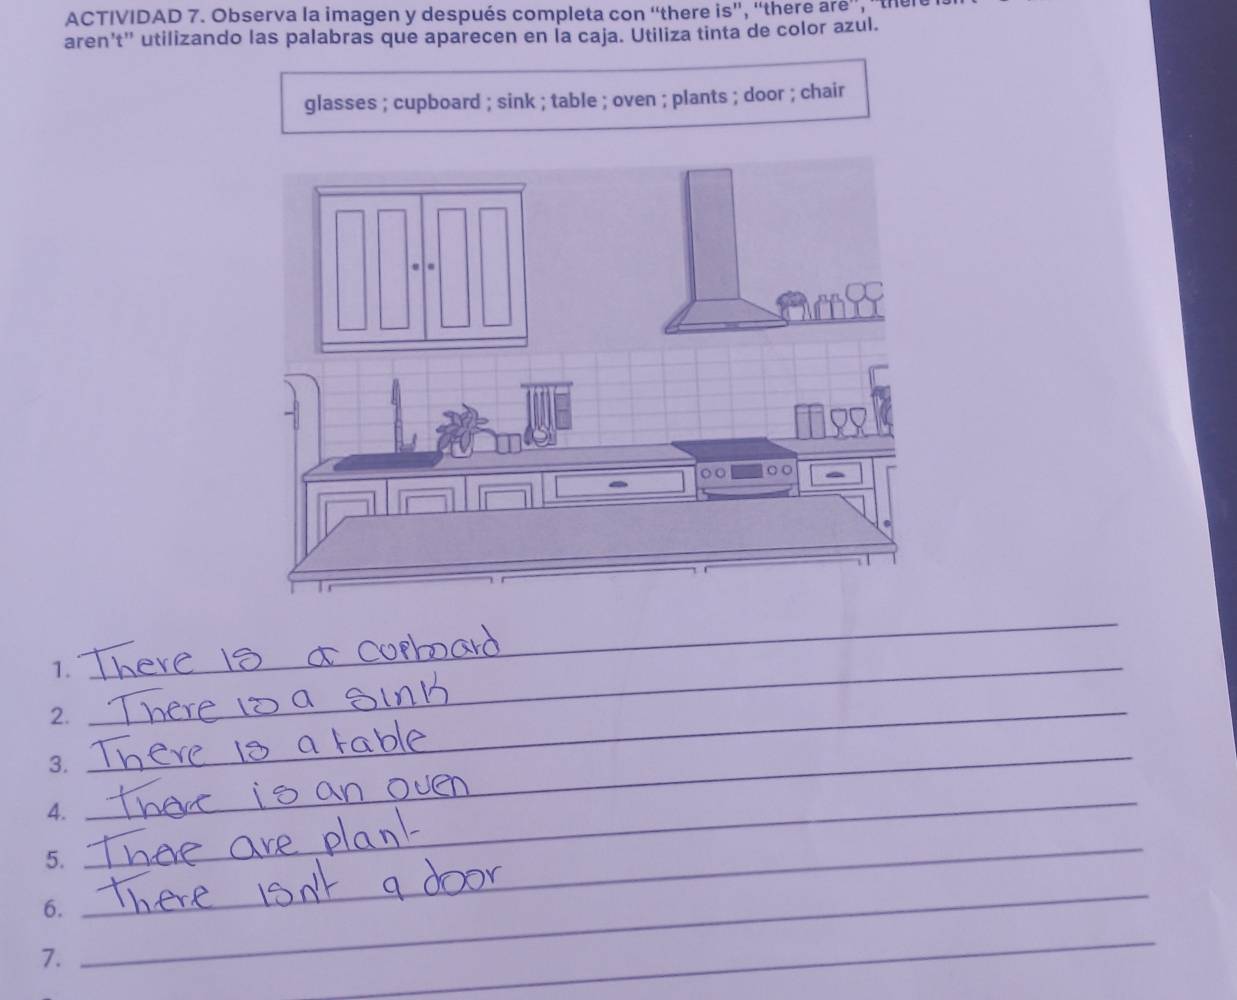 ACTIVIDAD 7. Observa la imagen y después completa con “there is”, “there are”,
aren't” utilizando las palabras que aparecen en la caja. Utiliza tinta de color azul.
glasses ; cupboard ; sink ; table ; oven ; plants ; door ; chair
1. There is a cupboard
2. There is a sink
3. There is a table
4. There is an oven
5. There are plant
6. There isn't a door
7.